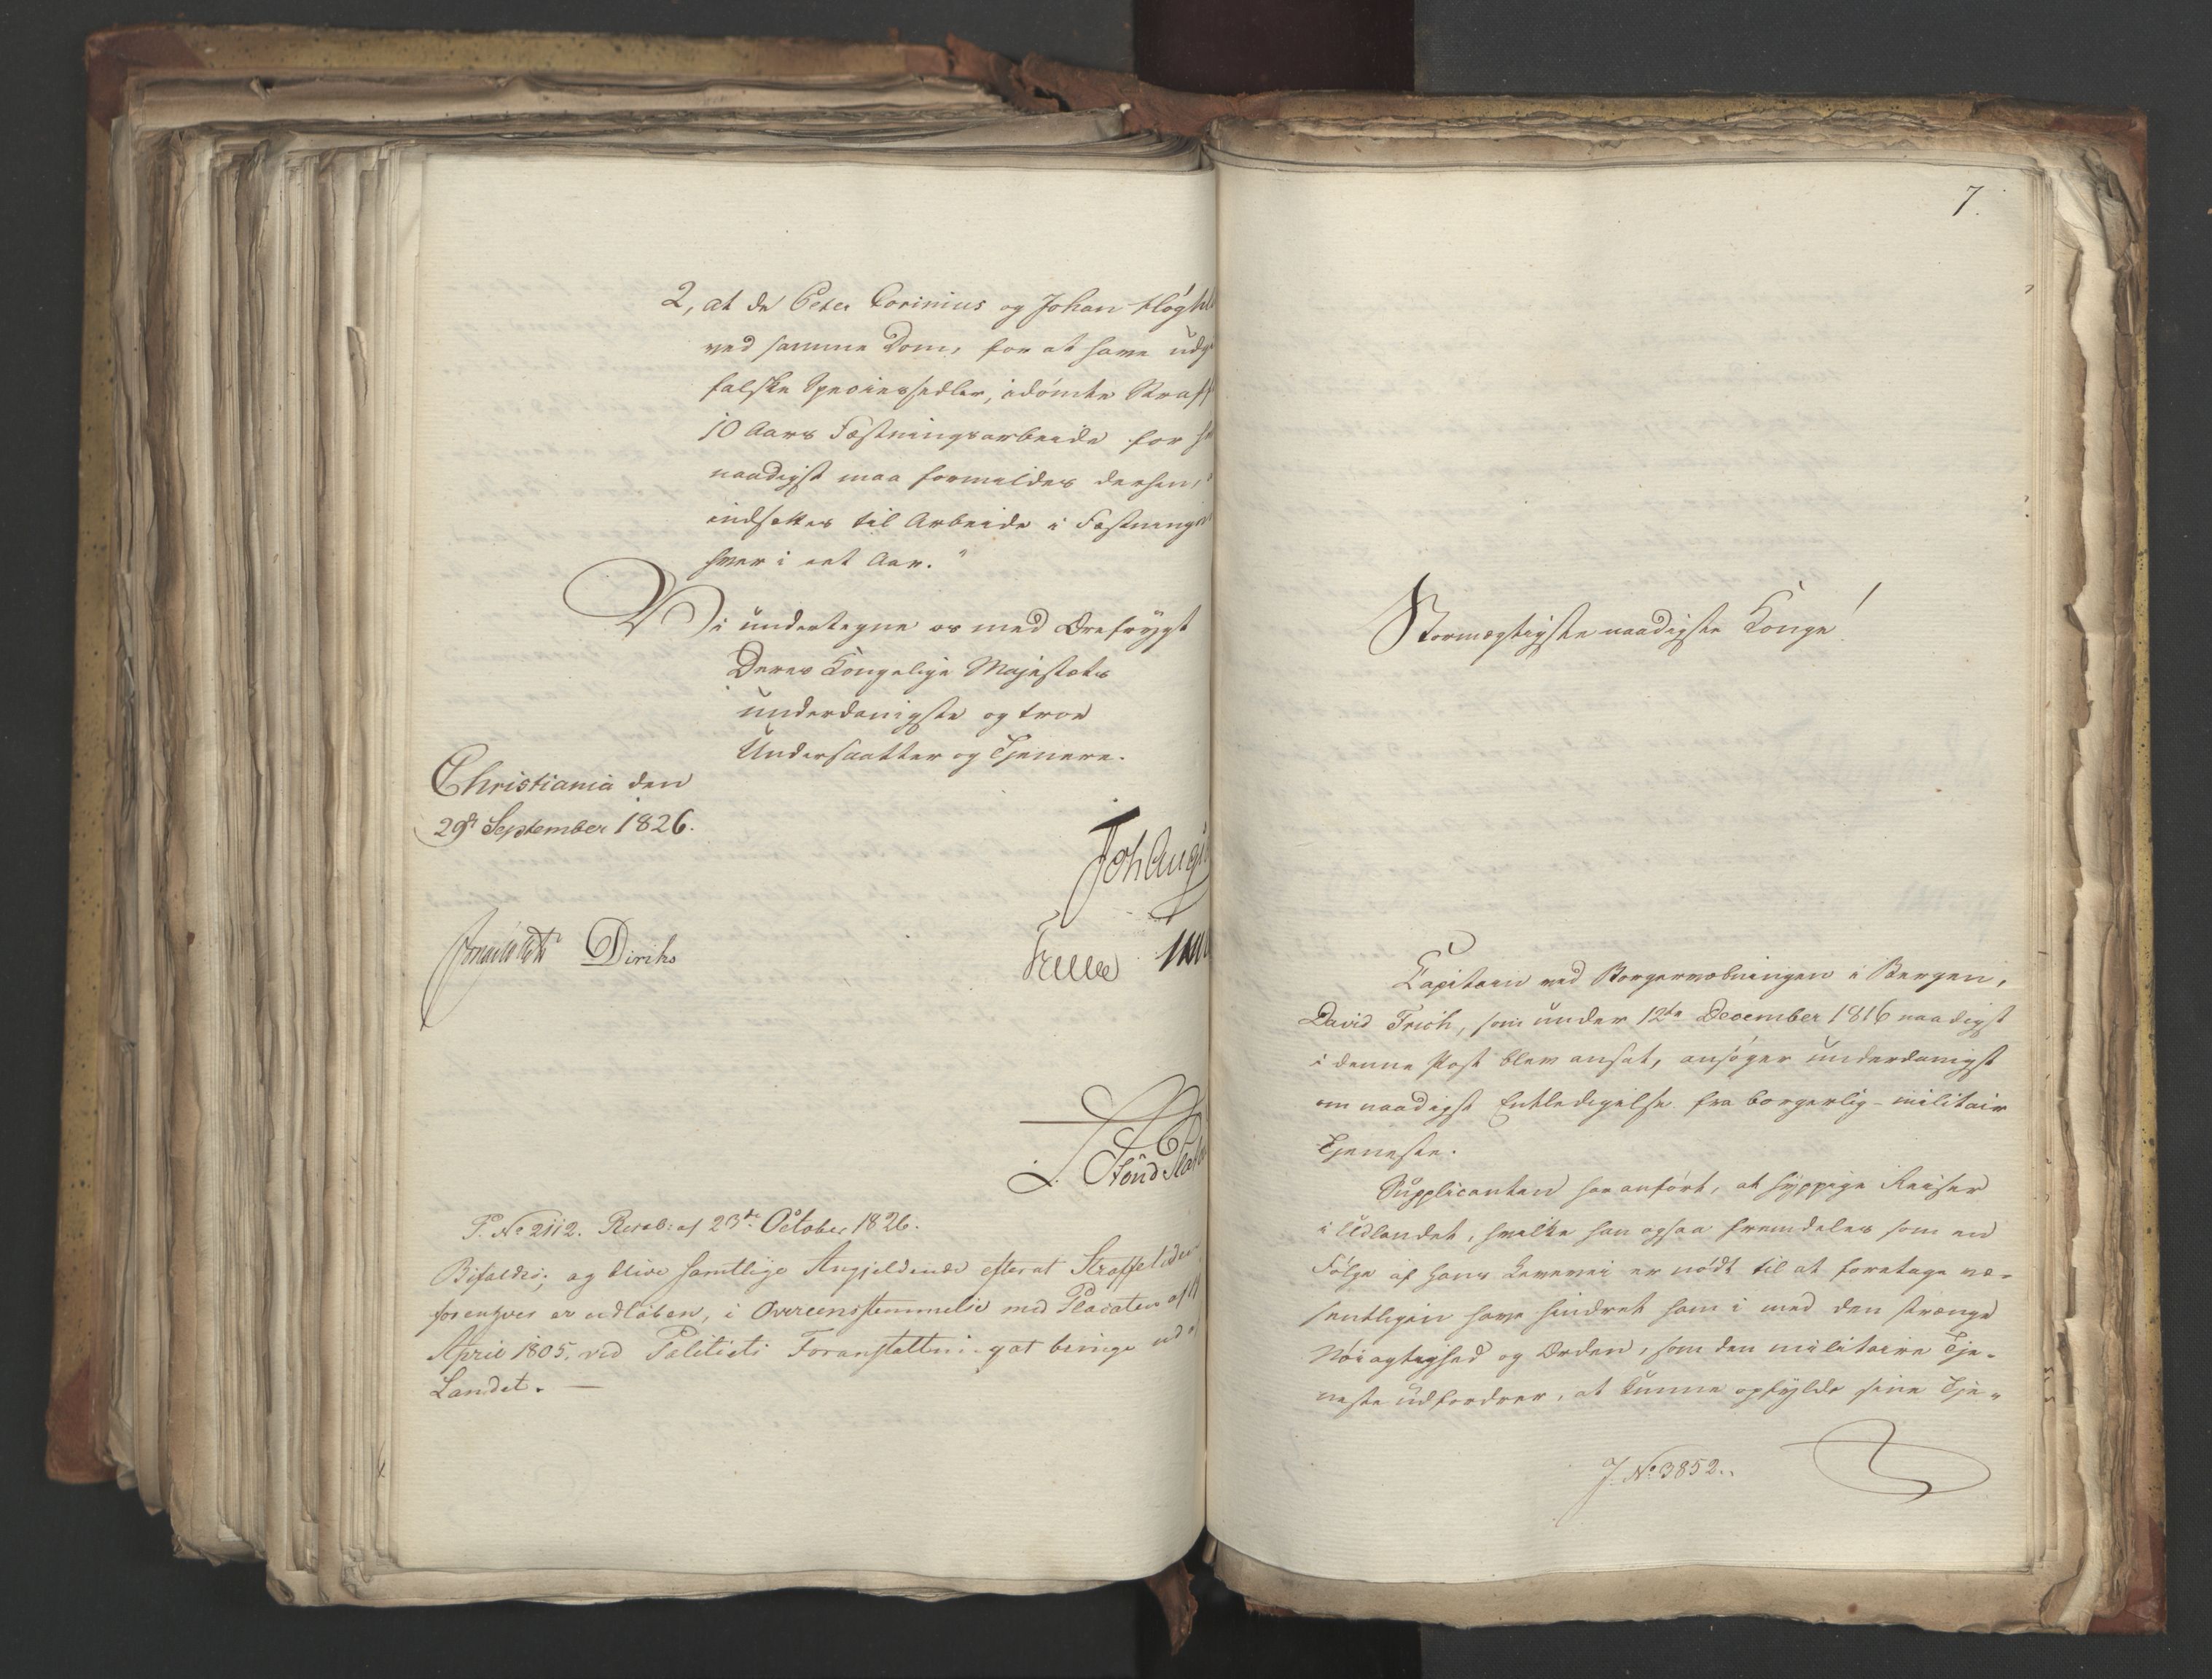 2, at de Peter Corinius og Johan
ved samme Dom, for at have
falske Speciessedler, idømte
10 Aars Fæstningsarbeide for
naadigst maa formildes derhen,
indsættes til Arbeide i
hver i eet Aar."
Vi undertegne os med Ærefrygt
Deres Kongelige Majestæts
underdanigste og troe
Undersaatter og Tjenere.
Christiania den
29de September 1826.
Diriks
P. No 2112. Resol: af 23de October 1826.
Bifaldes; og blive samtlige Angjeldende efterat
forenhver er udløben, i Overeensstemmelse med Placaten af
April 1805, ved Politiets Foranstaltning at bringe ud
Landet. —
7.
Stormægtigste naadigste Konge!
Capitain ved Borgervæbningen i Bergen,
David Frich, som under 12te December 1816 naadigst
i denne Post blev ansat, ansøger underdanigst
om naadigst Entledigelse fra borgerlig-militair
Tjeneste.
Supplicanten har anført, at hyppige Reiser
i Udlandet, hvilke han ogsaa fremdeles som en
Følge af hans Levevei er nødt til at foretage væ-
sentligen have hindret ham i med den strænge
Nöiagtighed og Orden, som den militaire Tje-
neste udfordrer, at kunne opfylde sine Tje-
J. No 3852.